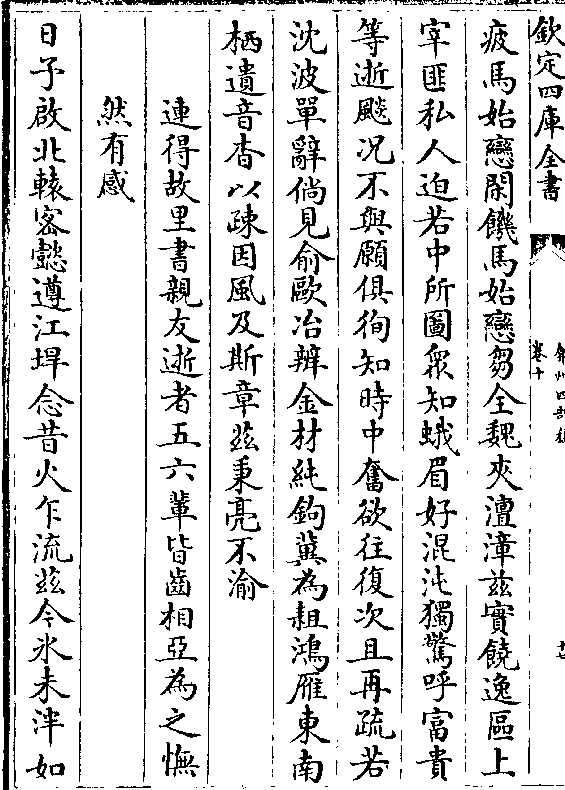 欽定四庫全書
弇州四部稿
卷十
疲馬始戀閑饑馬始戀芻全魏夾澶漳兹實饒逸區上
宰匪私人迫若中所圖衆知蛾眉好混沌獨驚呼富貴
等逝飈况不與願俱徇知時中奮欲往復次且再疏若
沈波單辭倘見俞歐冶辨金材純鉤冀為耝鴻雁東南
栖遺音杳以疎因風及斯章兹秉亮不渝
連得故里書親友逝者五六輩皆齒相亞為之憮
然有感
日予啟北轅宻懿遵江垾念昔火乍流兹今氷未泮如